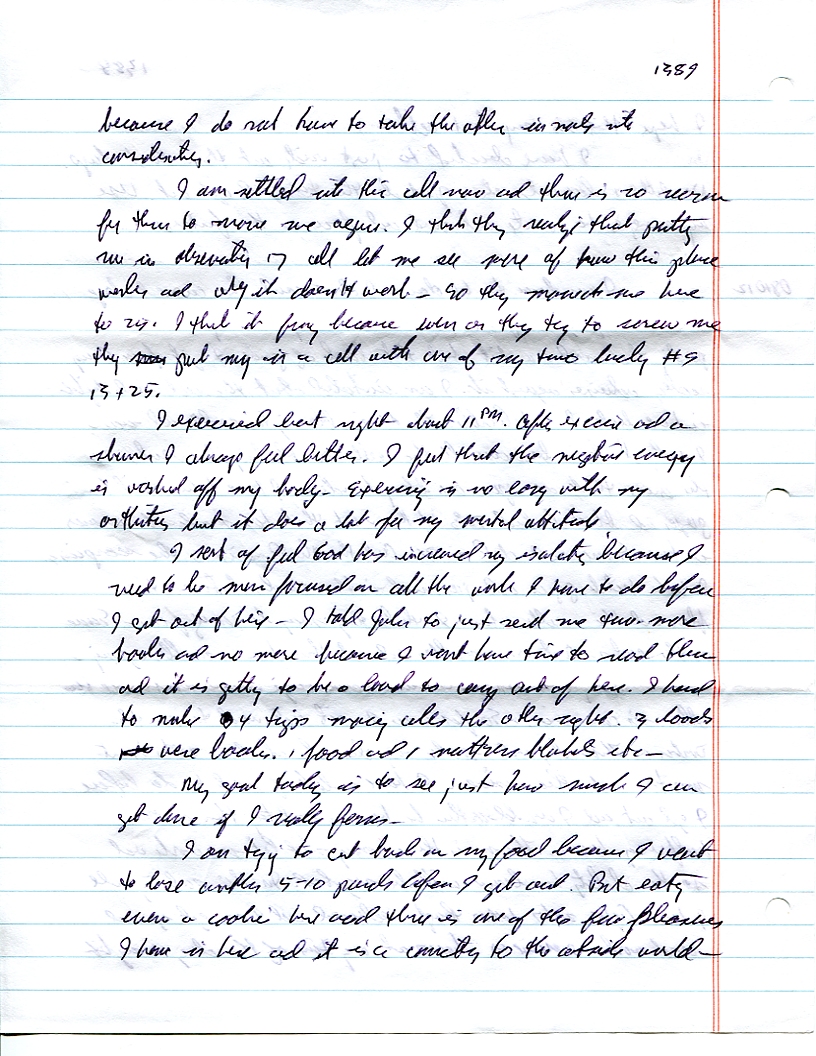 1389
because I do not have to take the other inmates into
consideration.
I am settled into this cell now and there is no reason
for them to move me again. I think they realize that putting
me in observation cell let me see more of how this place
works and why it doesn't work - so they moved me here
to 25. I think it funny because even as they try to screw me
they put my in a cell with one of my two lucky #s
13 + 25.
I exercised last night about 11 PM. After exercise and a
shower I always feel better. I feel that the negative energy
is washed off my body - Exercising is no easy with my
arthritis but it does a lot for my mental attitude.
I sort of feel God has increased my isolation because I
need to be more focused on all the work I have to do before
I get out of here - I told John to just send me two more
books and no more because I won't have time to read them
and it is getting to be a load to carry out of here. I had
to make 4 trips moving cells the other night. 3 loads
were books. 1 food and 1 mattress blankets etc -
My goal today is to see just how much I can
get done if I really focus -
I am trying to cut back on my food because I want
to lose another 5-10 pounds before I get out. But eating
even a cookie here and there is one of the few pleasures
I have in here and it is a connection to the outside world -